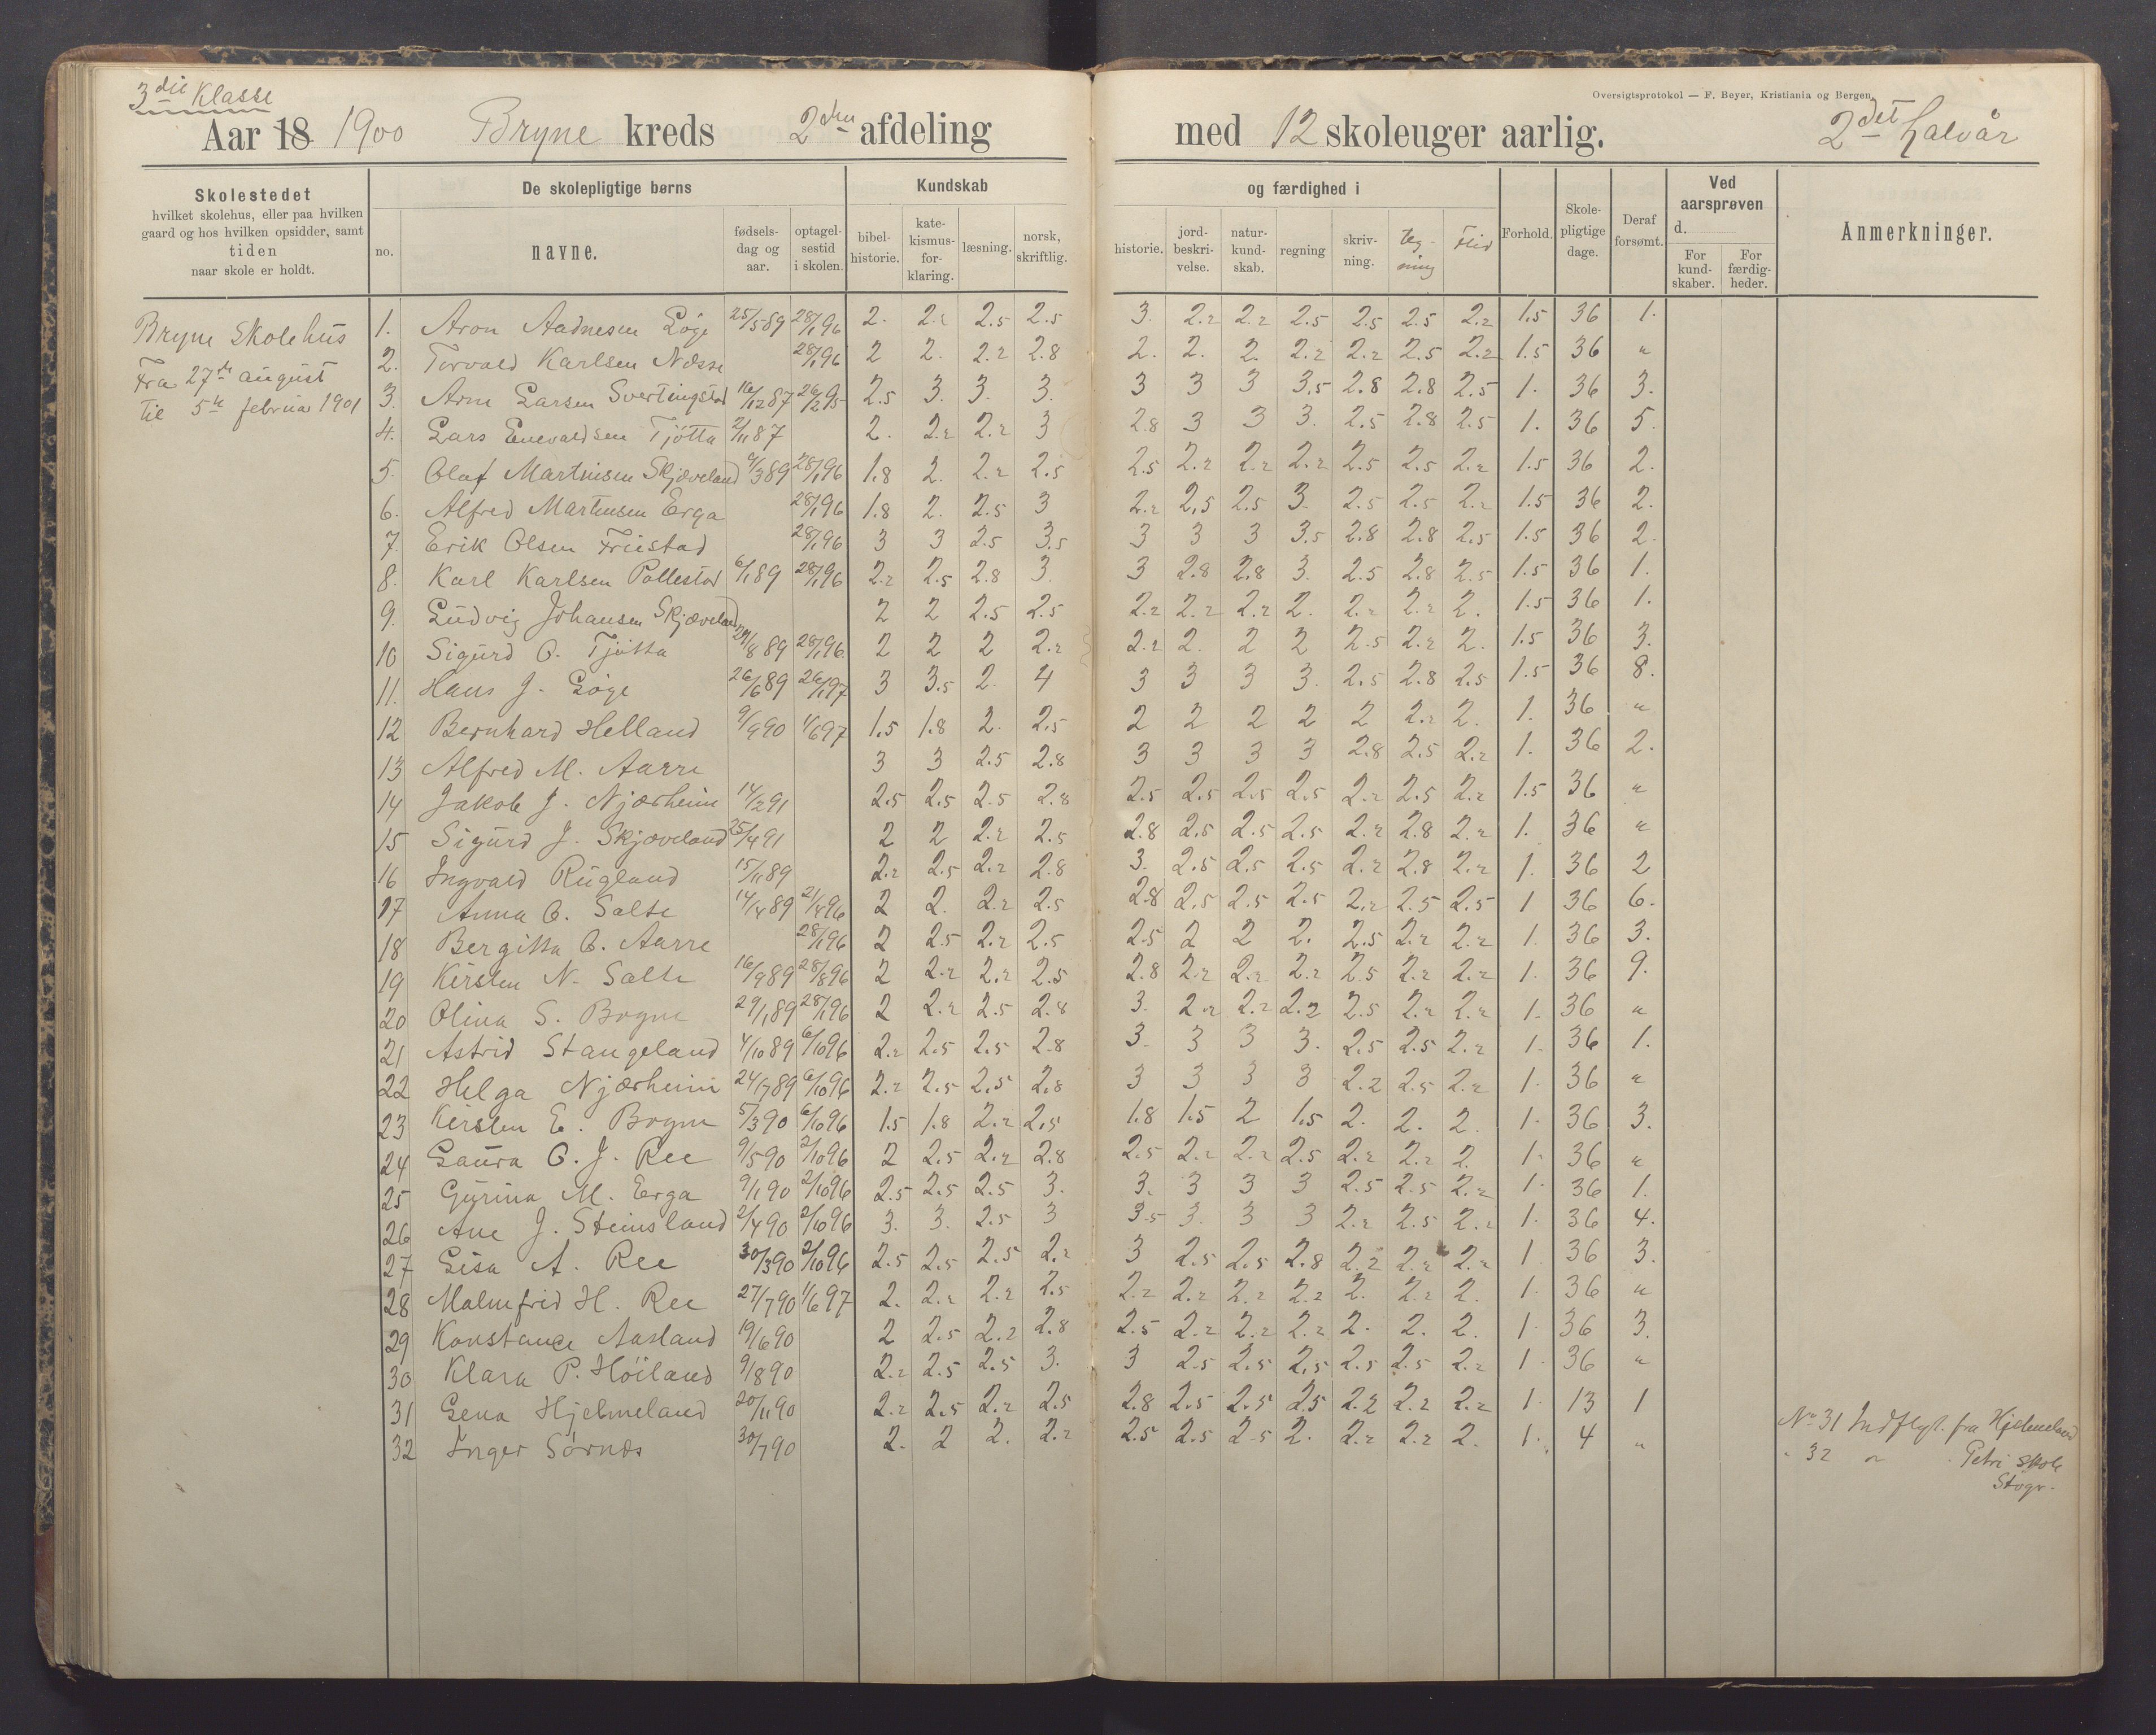 3die Klasse
Oversigtsprotokol — F. Beyer, Kristiania og Bergen.
Aar 18 1900 Bryne kreds 2den afdeling med 12 skoleuger aarlig. 2det halvår
Skolestedet
hvilket skolehus, eller paa hvilken
gaard og hos hvilken opsidder, samt
tiden
naar skole er holdt.
De skolepligtige børns
no.
navne.
fødsels-
dag og
aar.
optagel-
sestid
i skolen.
Kundskab
bibel-
historie.
kate-
kismus-
for-
klaring.
læsning.
norsk,
skriftlig.
og færdighed i
historie.
jord-
beskri-
velse.
natur-
kund-
skab.
regning
skriv-
ning.
teg-
ning
Flid
Forhold.
Skole-
pligtige
dage.
Deraf
forsømt.
Ved
aarsprøven
d.
For
kund-
skaber.
For
færdig-
heder.
Anmerkninger.
Bryne Skolehus
Fra 27de august
til 5te februar 1901
1. Aron Aadnesen Løge 25/5 89 28/1 96 2. 2.2 2.5 2.5 3. 2.2 2.2 2.5 2.5 2.5 2.2 1.5 36 1.
2. Torvald Karlsen Næsse 28/1 96 2 2. 2.2 2.8 2. 2. 2. 2.2 2.2 2.5 2.2 1.5 36 "
3. Arne Larsen Svertingstad 16/12 87 26/2 95 2.5 3. 3. 3. 3 3 3 3.5 2.8 2.8 2.5 1. 36 3.
4. Lars Enevaldsen Tjøtta 2/11 87 2. 2.2 2.2 3 2.8 3 3 3. 2.5 2.8 2.5 1. 36 5.
5. Olaf Martinisen Skjæveland 9/3 89 28/1 96 1.8 2. 2.2 2.5 2.5 2.2 2.2 2.2 2.5 2.5 2.2 1.5 36 2.
6. Alfred Martinsen Erga 28/1 96 1.8 2. 2.5 3 2.2 2.5 2.5 3. 2.5 2.5 2.2 1.5 36 2.
7. Erik Olsen Friestad 28/1 96 3 3 2.5 3.5 3 3 3 3.5 2.8 2.8 2.5 1.5 36 2.
8. Karl Karlsen Pollestad 6/1 89 28/1 96 2.2 2.5 2.8 3. 3 2.8 2.8 3. 2.5 2.8 2.5 1.5 36 1.
9. Ludvig Johansen Skjæveland 2 2 2.5 2.5 2.2 2.2 2.2 2. 2.2 2.2 2. 1.5 36 1.
10 Sigurd O. Tjøtta 24/8 89 28/1 96. 2 2 2 2.2 2.2 2. 2 2 2.5 2.2 2. 1.5 36 3.
11. Hans J. Løge 26/6 89 26/1 97 3 3.5 2. 4 3 3 3 3. 2.5 2.8 2.5 1.5 36 8.
12 Bernhard Helland 9/9 90 1/6 97 1.5 1.8 2. 2.5 2 2 2 2 2 2.2 2. 1. 36 "
13 Alfred M. Aarre 3 3 2.5 2.8 3 3 3 3 2.8 2.5 2.2 1. 36 2.
14 Jakob J. Njærheim 14/2 91 2.5 2.5 2.5 2.8 2.5 2.5 2.5 2.5 2.2 2.5 2.2 1.5 36 "
15 Sigurd J. Skjæveland 25/4 91 2 2 2.2 2.5 2.8 2.5 2.5 2.5 2.2 2.8 2.2 1. 36 "
16 Ingvald Rugland 15/11 89 2.2 2.5 2.2 2.8 3. 2.5 2.5 2.5 2.2 2.8 2.2 1. 36 2
17 Anna O. Salte 14/4 89 21/4 96 2 2. 2.2 2.5 2.8 2.5 2.5 2.5 2.2 2.5 2.5 1 36 6.
18 Bergitta O. Aarre 28/1 96 2 2.5 2.2 2.5 2.5 2 2 2. 2.5 2.2 2.2 1. 36 3.
19 Kirsten N. Salte 16/9 89 28/8 96 2 2.2 2.2 2.5 2.8 2.2 2.2 2.2 2.5 2.2 2.2 1. 36 9.
20 Olina S. Bryne 29/1 89 28/1 96 2 2.2 2.5 2.8 3. 2.2 2.2 2.2 2.5 2.2 2.2 1. 36 "
21 Astrid Stangeland 4/10 89 6/10 96 2.2 2.5 2.5 2.8 3. 3 3 3. 2.5 2.5 2.2 1. 36 1.
22 Helga Njærheim 24/7 89 6/10 96 2.2 2.5 2.5 2.8 3 3 3 3 2.2 2.5 2.2 1. 36 "
23 Kirsten E. Bryne 5/3 90 6/10 96 1.5 1.8 2.2 2.5 1.8 1.5 2 1.5 2. 2. 2. 1. 36 3.
24 Laura O. J. Ree 9/5 90 2/10 96 2 2.5 2.2 2.8 2.5 2.2 2.2 2.5 2.2 2.2 2. 1. 36 "
25 Gurina M. Erga 9/1 90 2/10 96 2.5 2.5 2.5 3. 3. 3 3 3 2.5 2.5 2.2 1. 36 1.
26 Ane J. Steinsland 2/4 90 2/10 96 3. 3. 2.5 3 3.5 3. 3 3 2.2 2.5 2.2 1. 36 4.
27 Lisa A. Ree 30/3 90 2/10 96 2.5 2.5 2.5 2.2 3 2.5 2.5 2.8 2.2 2.2 2.2 1 36 3.
28 Malmfrid H. Ree 27/7 90 1/6 97 2. 2.2 2.2 2.5 2.2 2.2 2.2 2.2 2. 2.2 2. 1. 36 "
29 Konstance Aasland 19/6 90 2 2.5 2.2 2.8 2.5 2.2 2.2 2.2 2. 2. 2. 1 36 3.
30 Klara P. Høiland 9/8 90 2.2 2.5 2.5 3. 3 2.5 2.5 2.5 2.5 2.5 2.2 1. 36 "
31 Lena Hjelmeland 20/11 90 2.2 2.5 2.2 2.5 2.8 2.5 2.5 2.5 2.2 2.2 2.2 1. 13 1
32 Inger Sørnæs 30/7 90 2. 2 2. 2.2 2.5 2.5 2.5 2. 2.2 2.2 2. 1. 4 "
No 31 Indflyt. fra Hjelmeland
" 32 " Petri skole